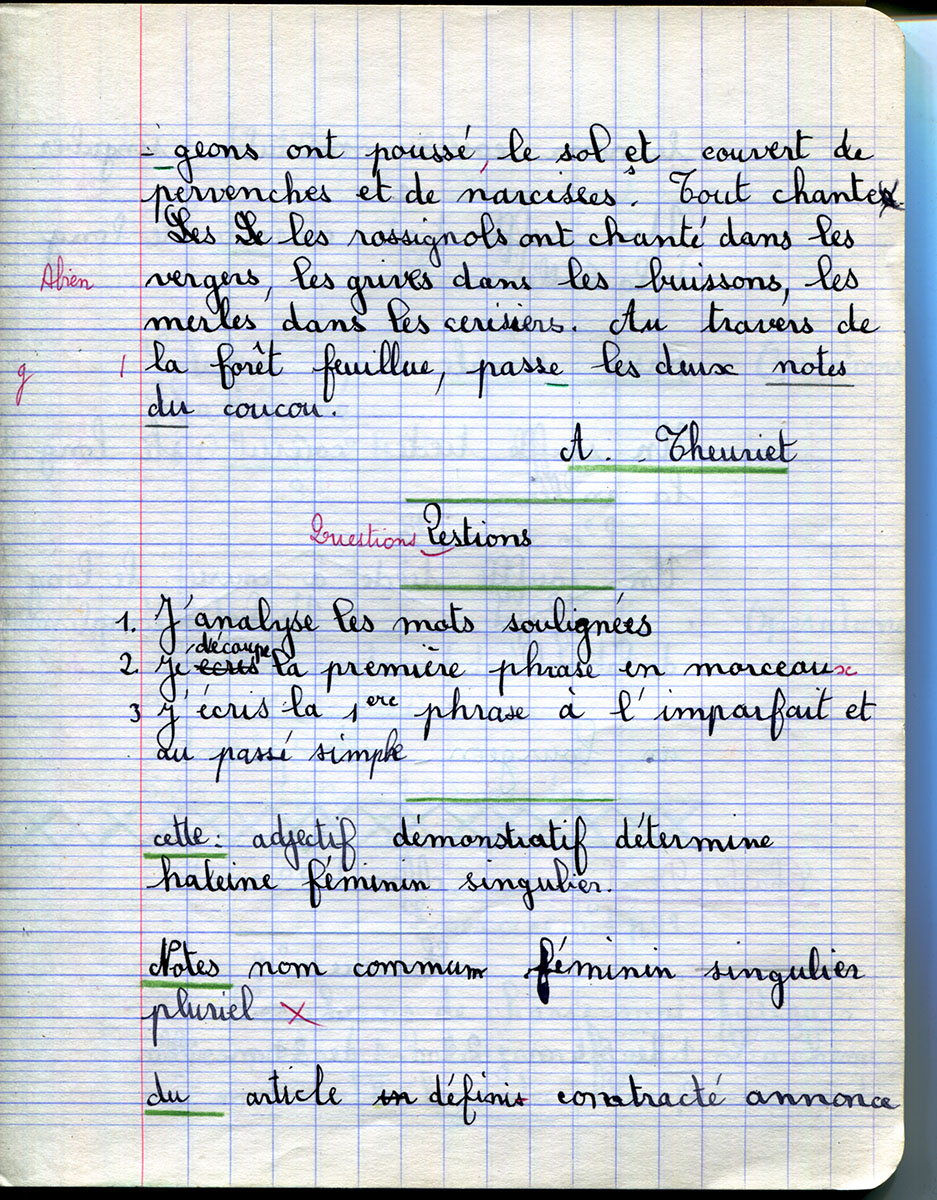 - geons ont poussé, le sol est couvert de
pervenches et de narcisses. Tout chante
Les Le les rossignols ont chanté dans les
Abien vergers, les grives dans les buissons, les
merles dans les cerisiers. Au travers de
g 1 la forêt feuillue, passe les deux notes
du coucou.
A. Theuriet
Questions Pestions
1. J'analyse les mots soulignées
découpe
2. Je écris la première phrase en morceaux
3 J'écris la 1ere phrase à l'imparfait et
au passé simple
cette: adjectif démonstratif détermine
haleine féminin singulier.
Notes nom commum féminin singulier
pluriel X
du article in définis contracté annonce